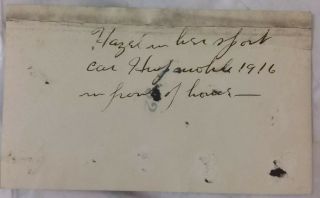 Hazel in her sport
car Hupmobile 1916
in front of house —